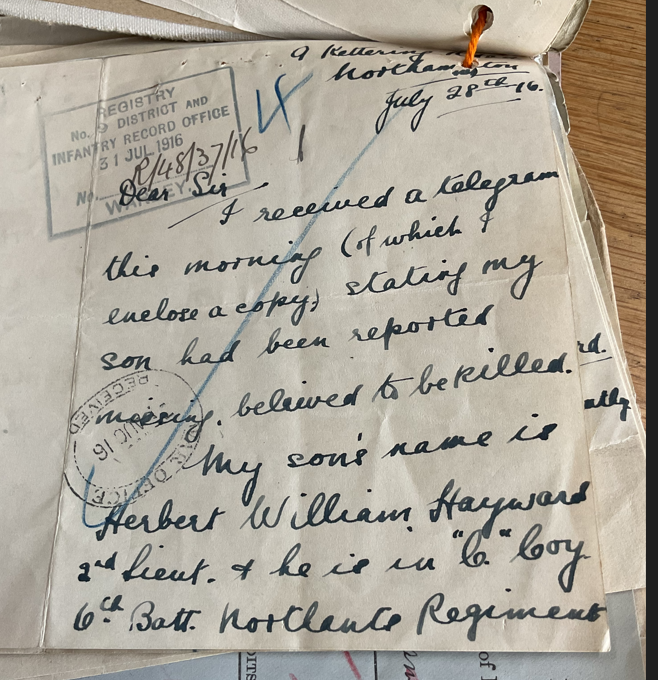 9 Kettering
Northampton
July 28th 16.
4
1
REGISTRY
No. 9 DISTRICT AND
INFANTRY RECORD OFFICE
31 JUL 1916
R/48/37/16
No.
Dear Sir
I received a telegram
this morning (of which I
enclose a copy) stating my
son had been reported
missing, beleived to be killed.
My son's name is
Herbert William Hayward
2nd Lieut. & he is in "C." Coy.
6th Batt. Northants Regiment
RECEIVED
AUG 16
WAR OFFICE
rd.
of